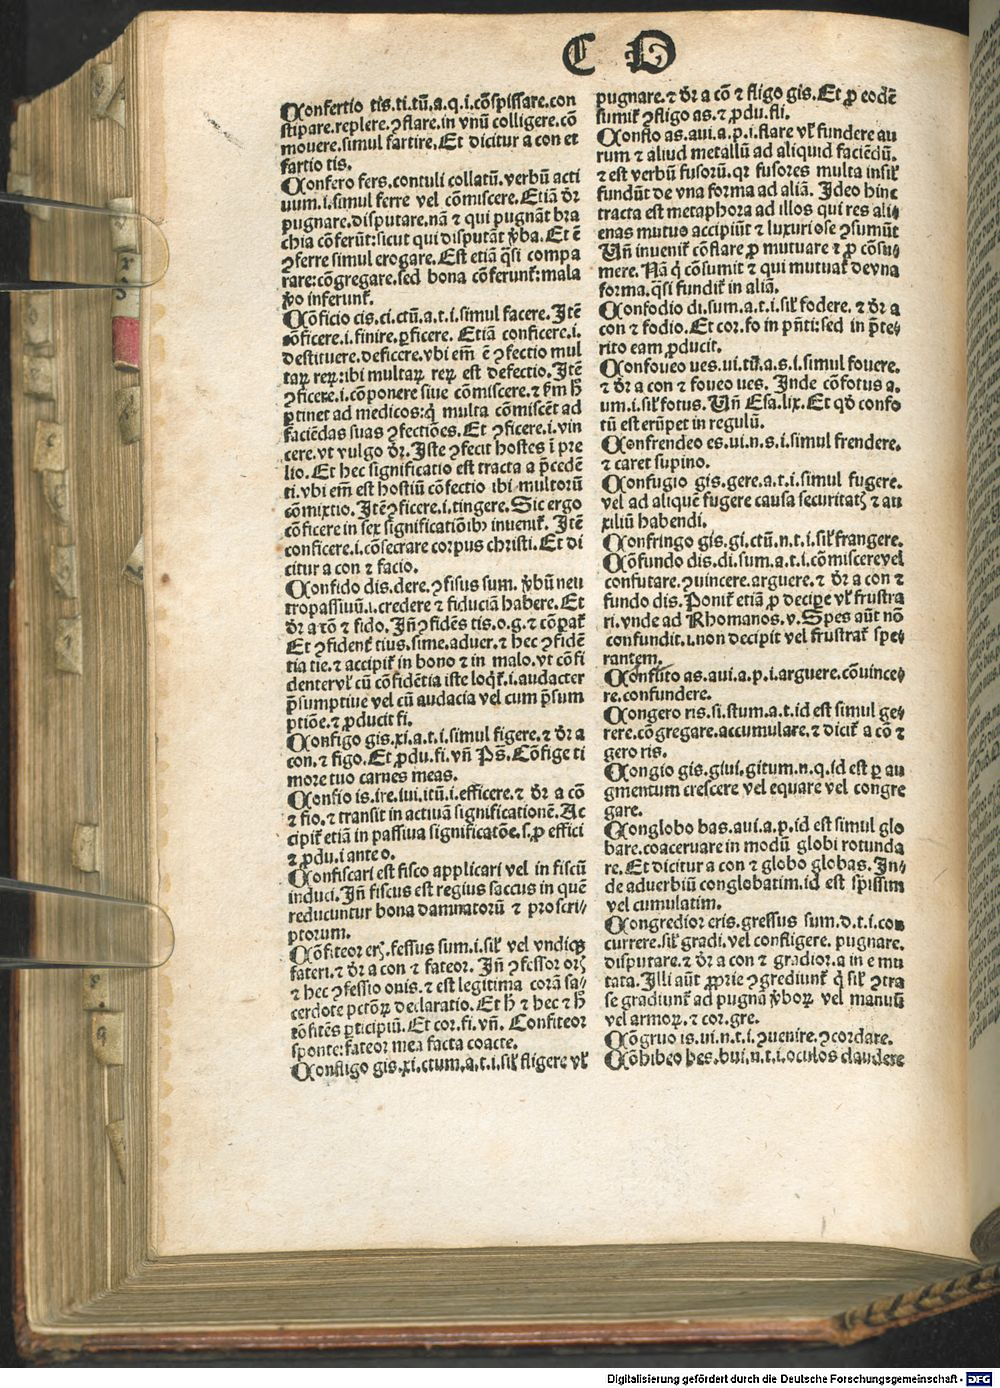 C O
Confertio tis.ti.tũ.a.q.i.cõspissare.con
stipare.replere.ꝯflare.in vnũ colligere.cõ
mouere.simul fartire.Et dicitur a con et
fartio tis.
Confero fers.contuli collatũ.verbũ acti
uum.i.simul ferre vel cõmiscere.Etiã dr̃
pugnare.disputare.nã ⁊ qui pugnãt bra
chia cõferũt:sicut qui disputãt ṽba.Et ẽ
ꝯferre simul erogare.Est etiã q̃si compa
rare:cõgregare.sed bona cõferunt̃:mala
ṽo inferunt̃.
Cõficio cis.ci.ctũ.a.t.i.simul facere.Itẽ
cõficere.i.finire.ꝑficere. Etiã conficere.i.
destituere.deficere.vbi em̃ ẽ ꝯfectio mul
taꝝ reꝝ:ibi multaꝝ reꝝ est defectio.Itẽ
ꝯficere.i.cõponere siue cõmiscere.⁊ ẜm h̃
ꝑtinet ad medicos:q̃ multa cõmiscẽt ad
faciẽdas suas ꝯfectiões.Et ꝯficere.i.vin
cere.vt vulgo dr̃.Iste ꝯfecit hostes ĩ pre
lio.Et hec significatio est tracta a p̃cedẽ
ti.vbi em̃ est hostiũ cõfectio ibi multorũ
cõmixtio.Itẽ ꝯficere.i.tingere. Sic ergo
cõficere in sex significatiõibꝰ inuenit̃. Itẽ
conficere.i.cõsecrare corpus christi. Et di
citur a con ⁊ facio.
Confido dis.dere.ꝯfisus sum. ṽbũ neu
tropassiuũ.i.credere ⁊ fiduciã habere. Et
dr̃ a cõ ⁊ fido. Iñ ꝯfidẽs tis.o.g.⁊ cõparat̃
Et ꝯfidenter̃ tius.sime.aduer.⁊ hec ꝯfidẽ
tia tie.⁊ accipit̃ in bono ⁊ in malo.vt cõfi
denter vl̃ cũ cõfidẽtia iste loq̃t̃.i.audacter
p̃sumptiue vel cũ audacia vel cum p̃sum
ptiõe.⁊ ꝓducit fi.
Configo gis.xi.a.t.i.simul figere.⁊ dr̃ a
con.⁊ figo. Et ꝓdu.fi.vñ Pš. Cõfige ti
more tuo carnes meas.
Confio is.ire.iui.itũ.i.efficere.⁊ dr̃ a cõ
⁊ fio.⁊ transit in actiuã significationẽ. Ac
cipit̃ etiã in passiua significatõe.s.ꝓ effici
⁊ ꝓdu.i ante o.
Confiscari est fisco applicari vel in fiscũ
induci. Iñ fiscus est regius saccus in quẽ
reducuntur bona damnatorũ ⁊ proscri⸗
ptorum.
Cõfiteor eris.fessus sum.i.sil̃ vel vndiqꝫ
fateri.⁊ dr̃ a con ⁊ fateor. Iñ ꝯfessor oris
⁊ hec ꝯfessio onis.⁊ est legitima corã sa⸗
cerdote pctõꝝ declaratio. Et h̃ ⁊ hec ⁊ h̃
cõfitẽs ꝑticipiũ. Et cor.fi.vñ. Confiteor
sponte:fateor mea facta coacte.
Confligo gis.xi.ctum.a.t.i.sil̃ fligere vl̃
pugnare.⁊ dr̃ a cõ ⁊ fligo gis.Et ꝓ eodẽ
sumit̃ ꝯfligo as.⁊ ꝓdu.fli.
Conflo as.aui.a.p.i.flare vl̃ fundere au
rum ⁊ aliud metallũ ad aliquid faciẽdũ.
⁊ est verbũ fusorũ.qr fusores multa insil̃
fundũt de vna forma ad aliã. Ideo hinc
tracta est metaphora ad illos qui res ali⸗
enas mutuo accipiũt ⁊ luxuriose ꝯsumũt
Uñ inuenit̃ cõflare ꝓ mutuare ⁊ ꝓ cõsu⸗
mere. Nã q̃ cõsumit ⁊ qui mutuat̃ de vna
forma.q̃si fundit̃ in aliã.
Confodio di.sum.a.t.i.sil̃ fodere.⁊ dr̃ a
con ⁊ fodio.Et cor.fo in pñti:sed in p̃te⸗
rito eam ꝓducit.
Confoueo ues.ui.tũ.a.s.i.simul fouere.
⁊ dr̃ a con ⁊ foueo ues. Inde cõfotus a.
um.i.sil̃ fotus. Uñ Esa.lix.Et qd̃ confo
tũ est erũpet in regulũ.
Confrendeo es.ui.n.s.i.simul frendere.
⁊ caret supino.
Confugio gis.gere.a.t.i.simul fugere.
vel ad aliquẽ fugere causa securitatis ⁊ au
xiliũ habendi.
Confringo gis.gi.ctũ.n.t.i.sil̃ frangere.
Cõfundo dis.di.sum.a.t.i.cõmiscere vel
confutare.ꝯuincere.arguere.⁊ dr̃ a con ⁊
fundo dis. Ponit̃ etiã ꝓ decipere vl̃ frustra
ri.vnde ad Rhomanos.v.Spes aũt nõ
confundit.i.non decipit vel frustrat̃ spe⸗
rantem.
Confuto as.aui.a.p.i.arguere.cõuince⸗
re.confundere.
Congero ris.si.stum.a.t.id est simul ge⸗
rere.cõgregare.accumulare.⁊ dicit̃ a cõ ⁊
gero ris.
Congio gis.giui.gitum.n.q.id est ꝑ au
gmentum crescere vel equare vel congre
gare.
Conglobo bas.aui.a.p.id est simul glo
bare.coaceruare in modũ globi rotunda
re.Et dicitur a con ⁊ globo globas. In⸗
de aduerbiũ conglobatim.id est spissim
vel cumulatim.
Congredior eris.gressus sum.d.t.i.con
currere.sil̃ gradi.vel confligere. pugnare.
disputare.⁊ dr̃ a con ⁊ gradior.a in e mu
tata.Illi aũt ꝓprie ꝯgrediunt̃ q̃ sil̃ ꝯtra
se gradiunt̃ ad pugnã ṽboꝝ vel manuũ
vel armoꝝ.⁊ cor.gre.
Cõgruo is.ui.n.t.i.ꝯuenire.ꝯcordare.
Cõhibeo bes.bui.n.t.i.oculos claudere
Digitalisierung gefördert durch die Deutsche Forschungsgemeinschaft - DFG